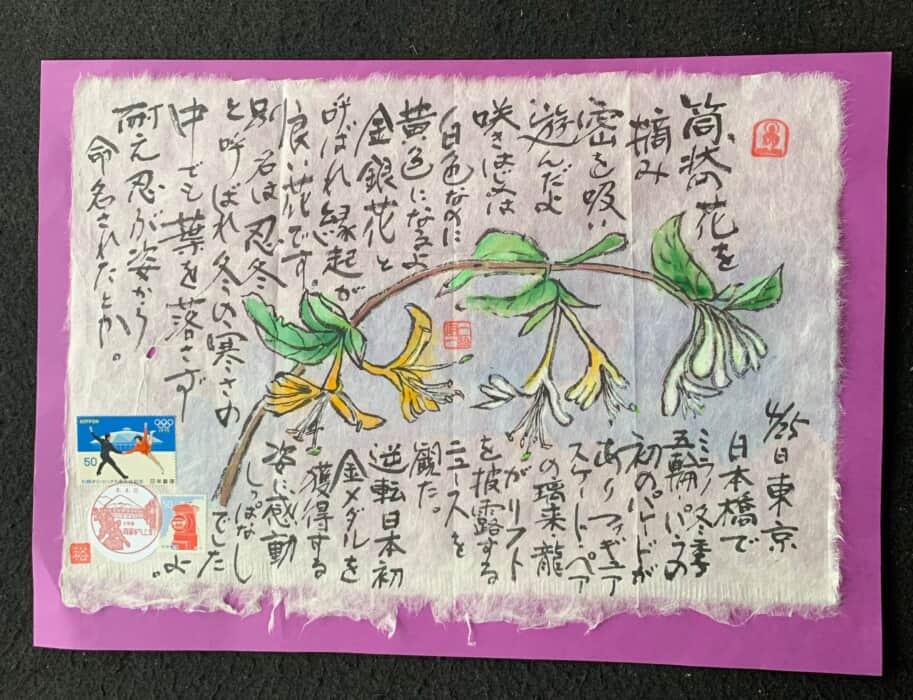 筒状の花を
摘み
蜜を吸い
遊んだよ
咲きはじめは
白色なのに
黄色になるよ
金銀花と
呼ばれ縁起が
良い花です。
別名は忍冬
と呼ばれ冬の寒さの
中でも葉を落さず
耐え忍ぶ姿から
命名されたとか。
4/25日東京
日本橋で
ミラノ冬季
五輪・パラの
初のパレードが
あり フィギュア
スケート・ペア
の璃来・龍
がリフト
を披露する
ニュースを
観た。
逆転日本初
金メダルを
獲得する
姿に感動
しっぱなし
でした
よ。
NIPPON
50
日本郵便